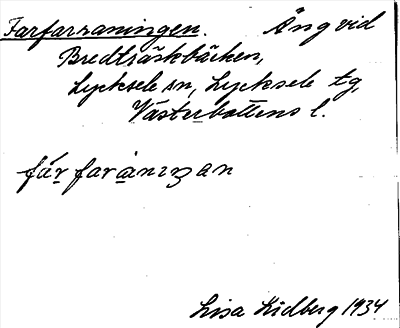 Farfarraningen. Äng vid
Bredträskbäcken,
Lycksele sn, Lycksele tg,
Västerbottens l.
fárfarànıŋan
Lisa Lidberg 1934